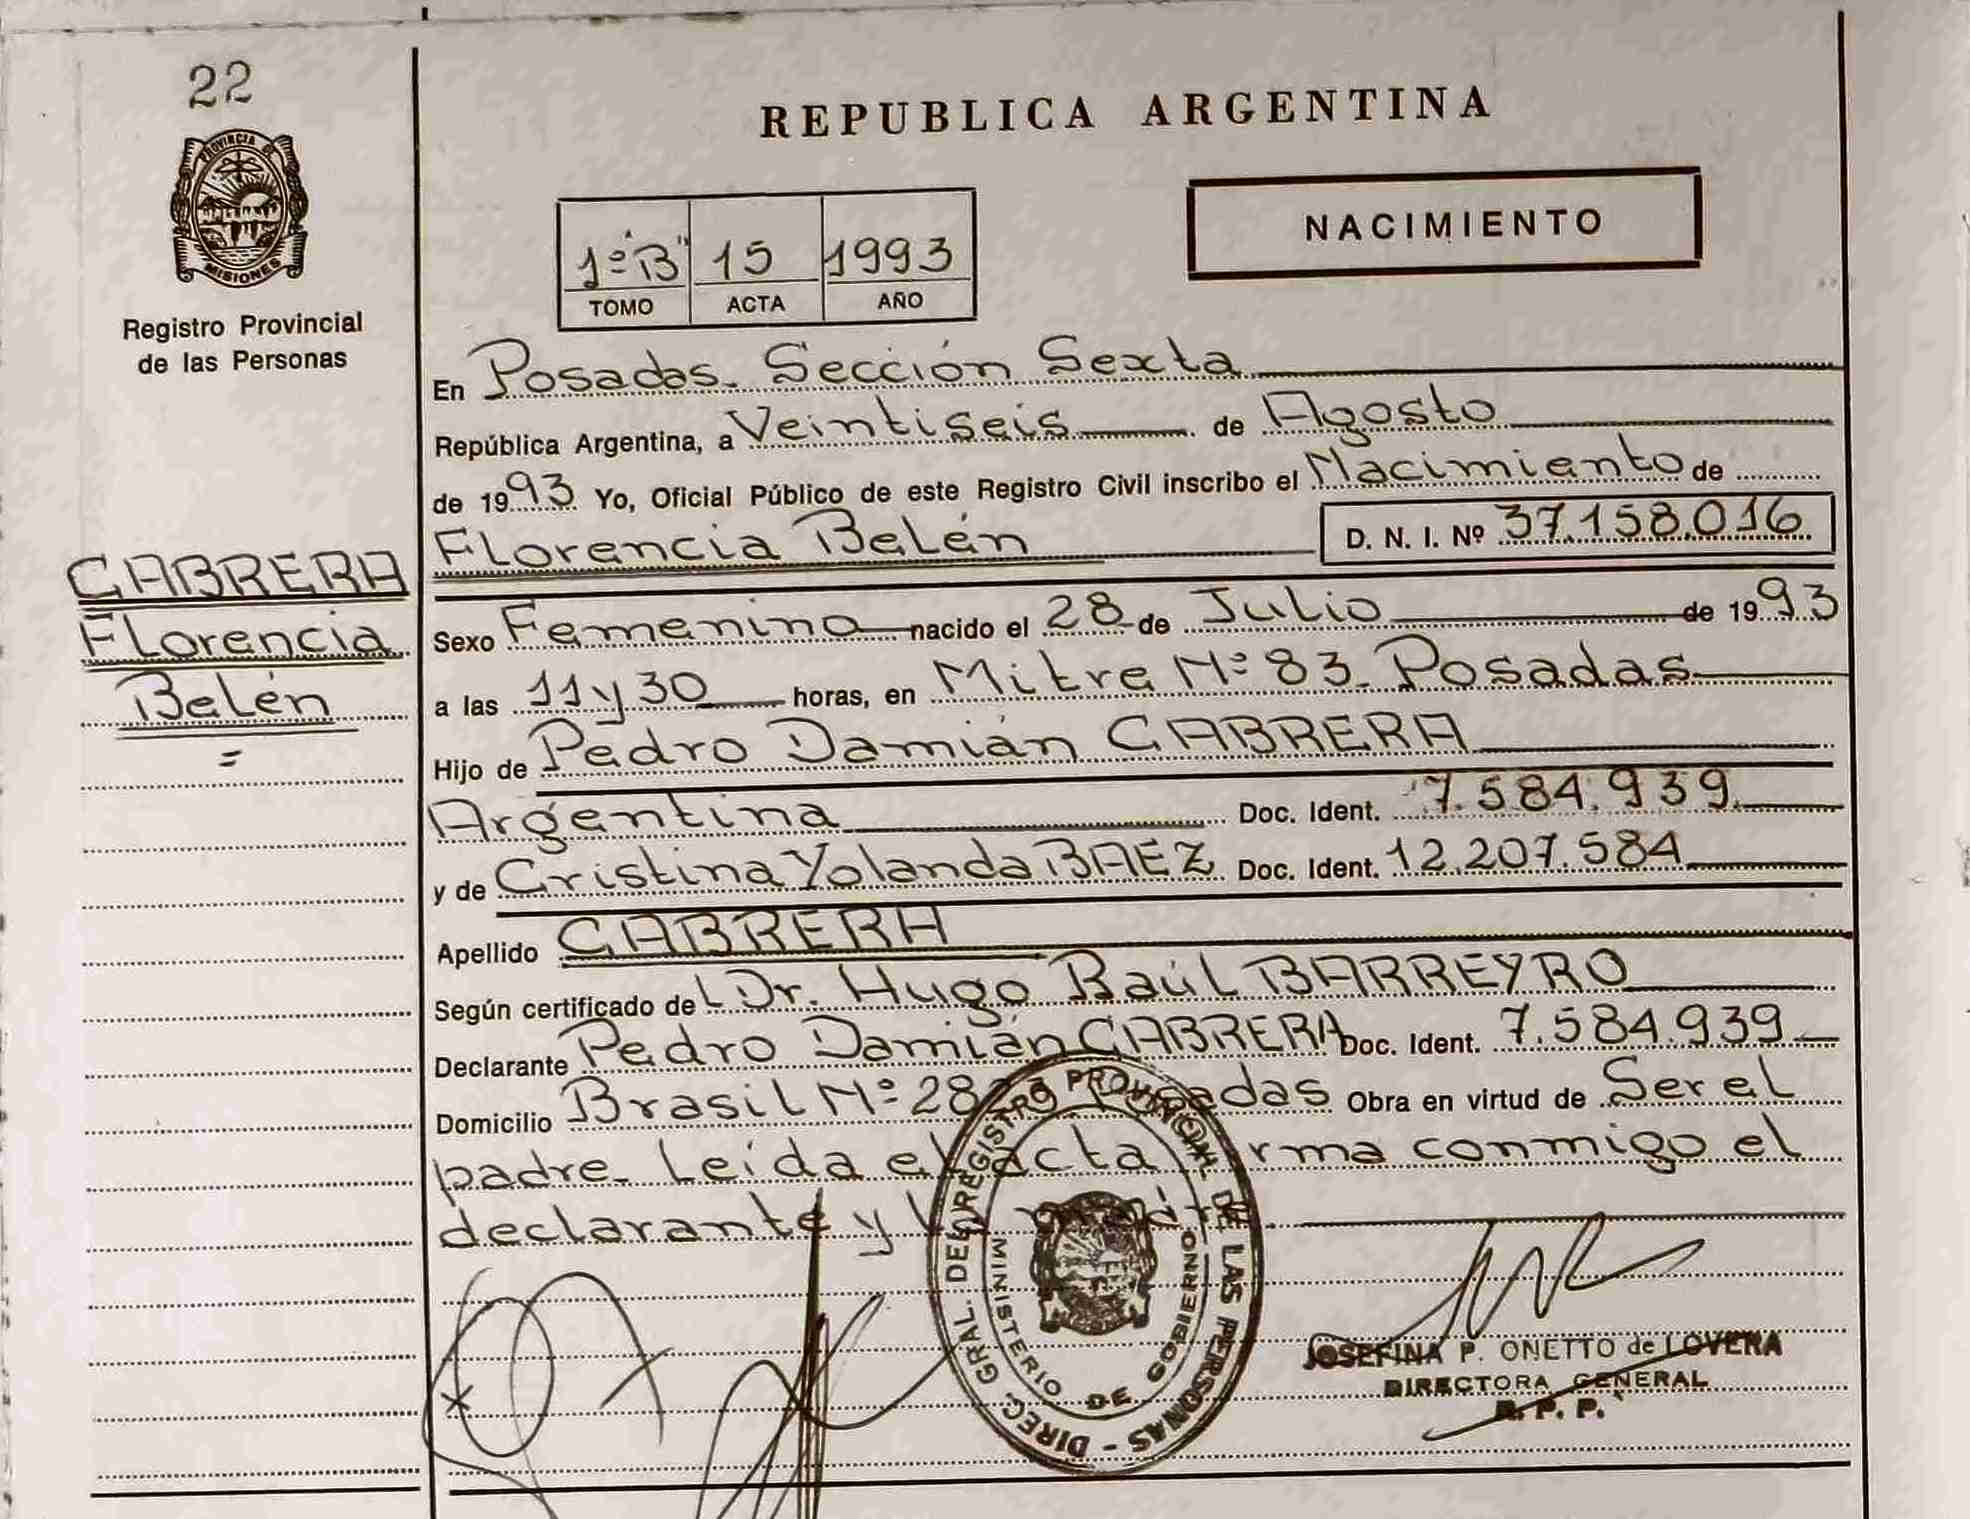 22
PROVINCIA DE
MISIONES
Registro Provincial
de las Personas
CABRERA
Florencia
Belén
=
REPUBLICA ARGENTINA
NACIMIENTO
1º "B" 15 1993
TOMO ACTA AÑO
En Posadas. Sección Sexta
República Argentina, a Veintiseis de Agosto
de 1993 Yo, Oficial Público de este Registro Civil inscribo el Nacimiento de
Florencia Belén D. N. I. Nº 37.158.016
Sexo Femenino nacido el 28 de Julio de 1993
a las 11 y 30 horas, en Mitre Nº 83 Posadas
Hijo de Pedro Damián CABRERA
Argentina Doc. Ident. 7.584.939
y de Cristina Yolanda BAEZ Doc. Ident. 12.207.584
Apellido CABRERA
Según certificado de Dr. Hugo Raúl BARREYRO
Declarante Pedro Damián CABRERA Doc. Ident. 7.584.939
Domicilio Brasil Nº Posadas Obra en virtud de Ser el
padre. Leída el acta firma conmigo el
declarante y
DIREC. GRAL. DEL REGISTRO PROVINCIAL DE LAS PERSONAS -
MINISTERIO DE GOBIERNO
JOSEFINA P. ONETTO de LOVERA
DIRECTORA GENERAL
R. P. P.